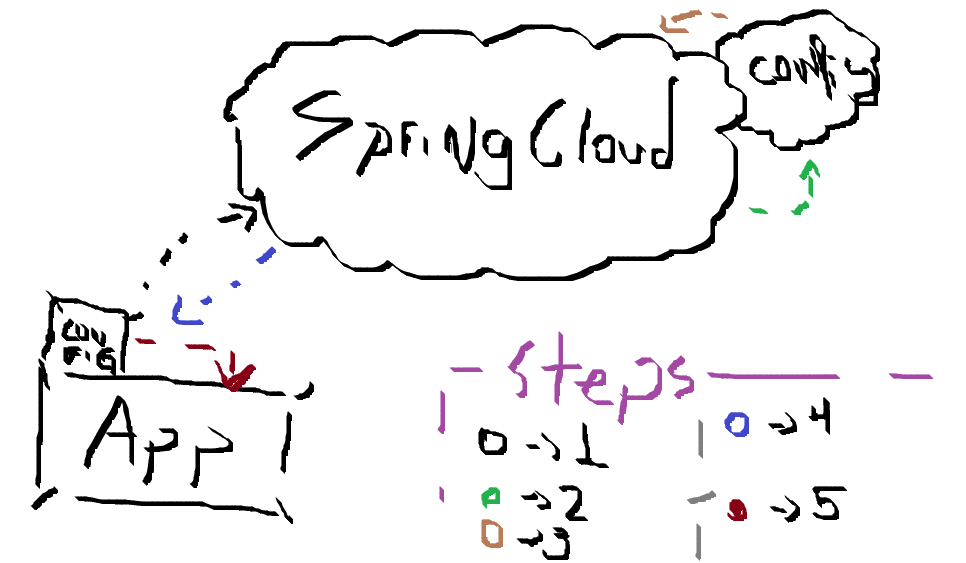 Spring Cloud
Config
CON
FIG
App
Steps
O → 1
O → 2
O → 3
O → 4
O → 5